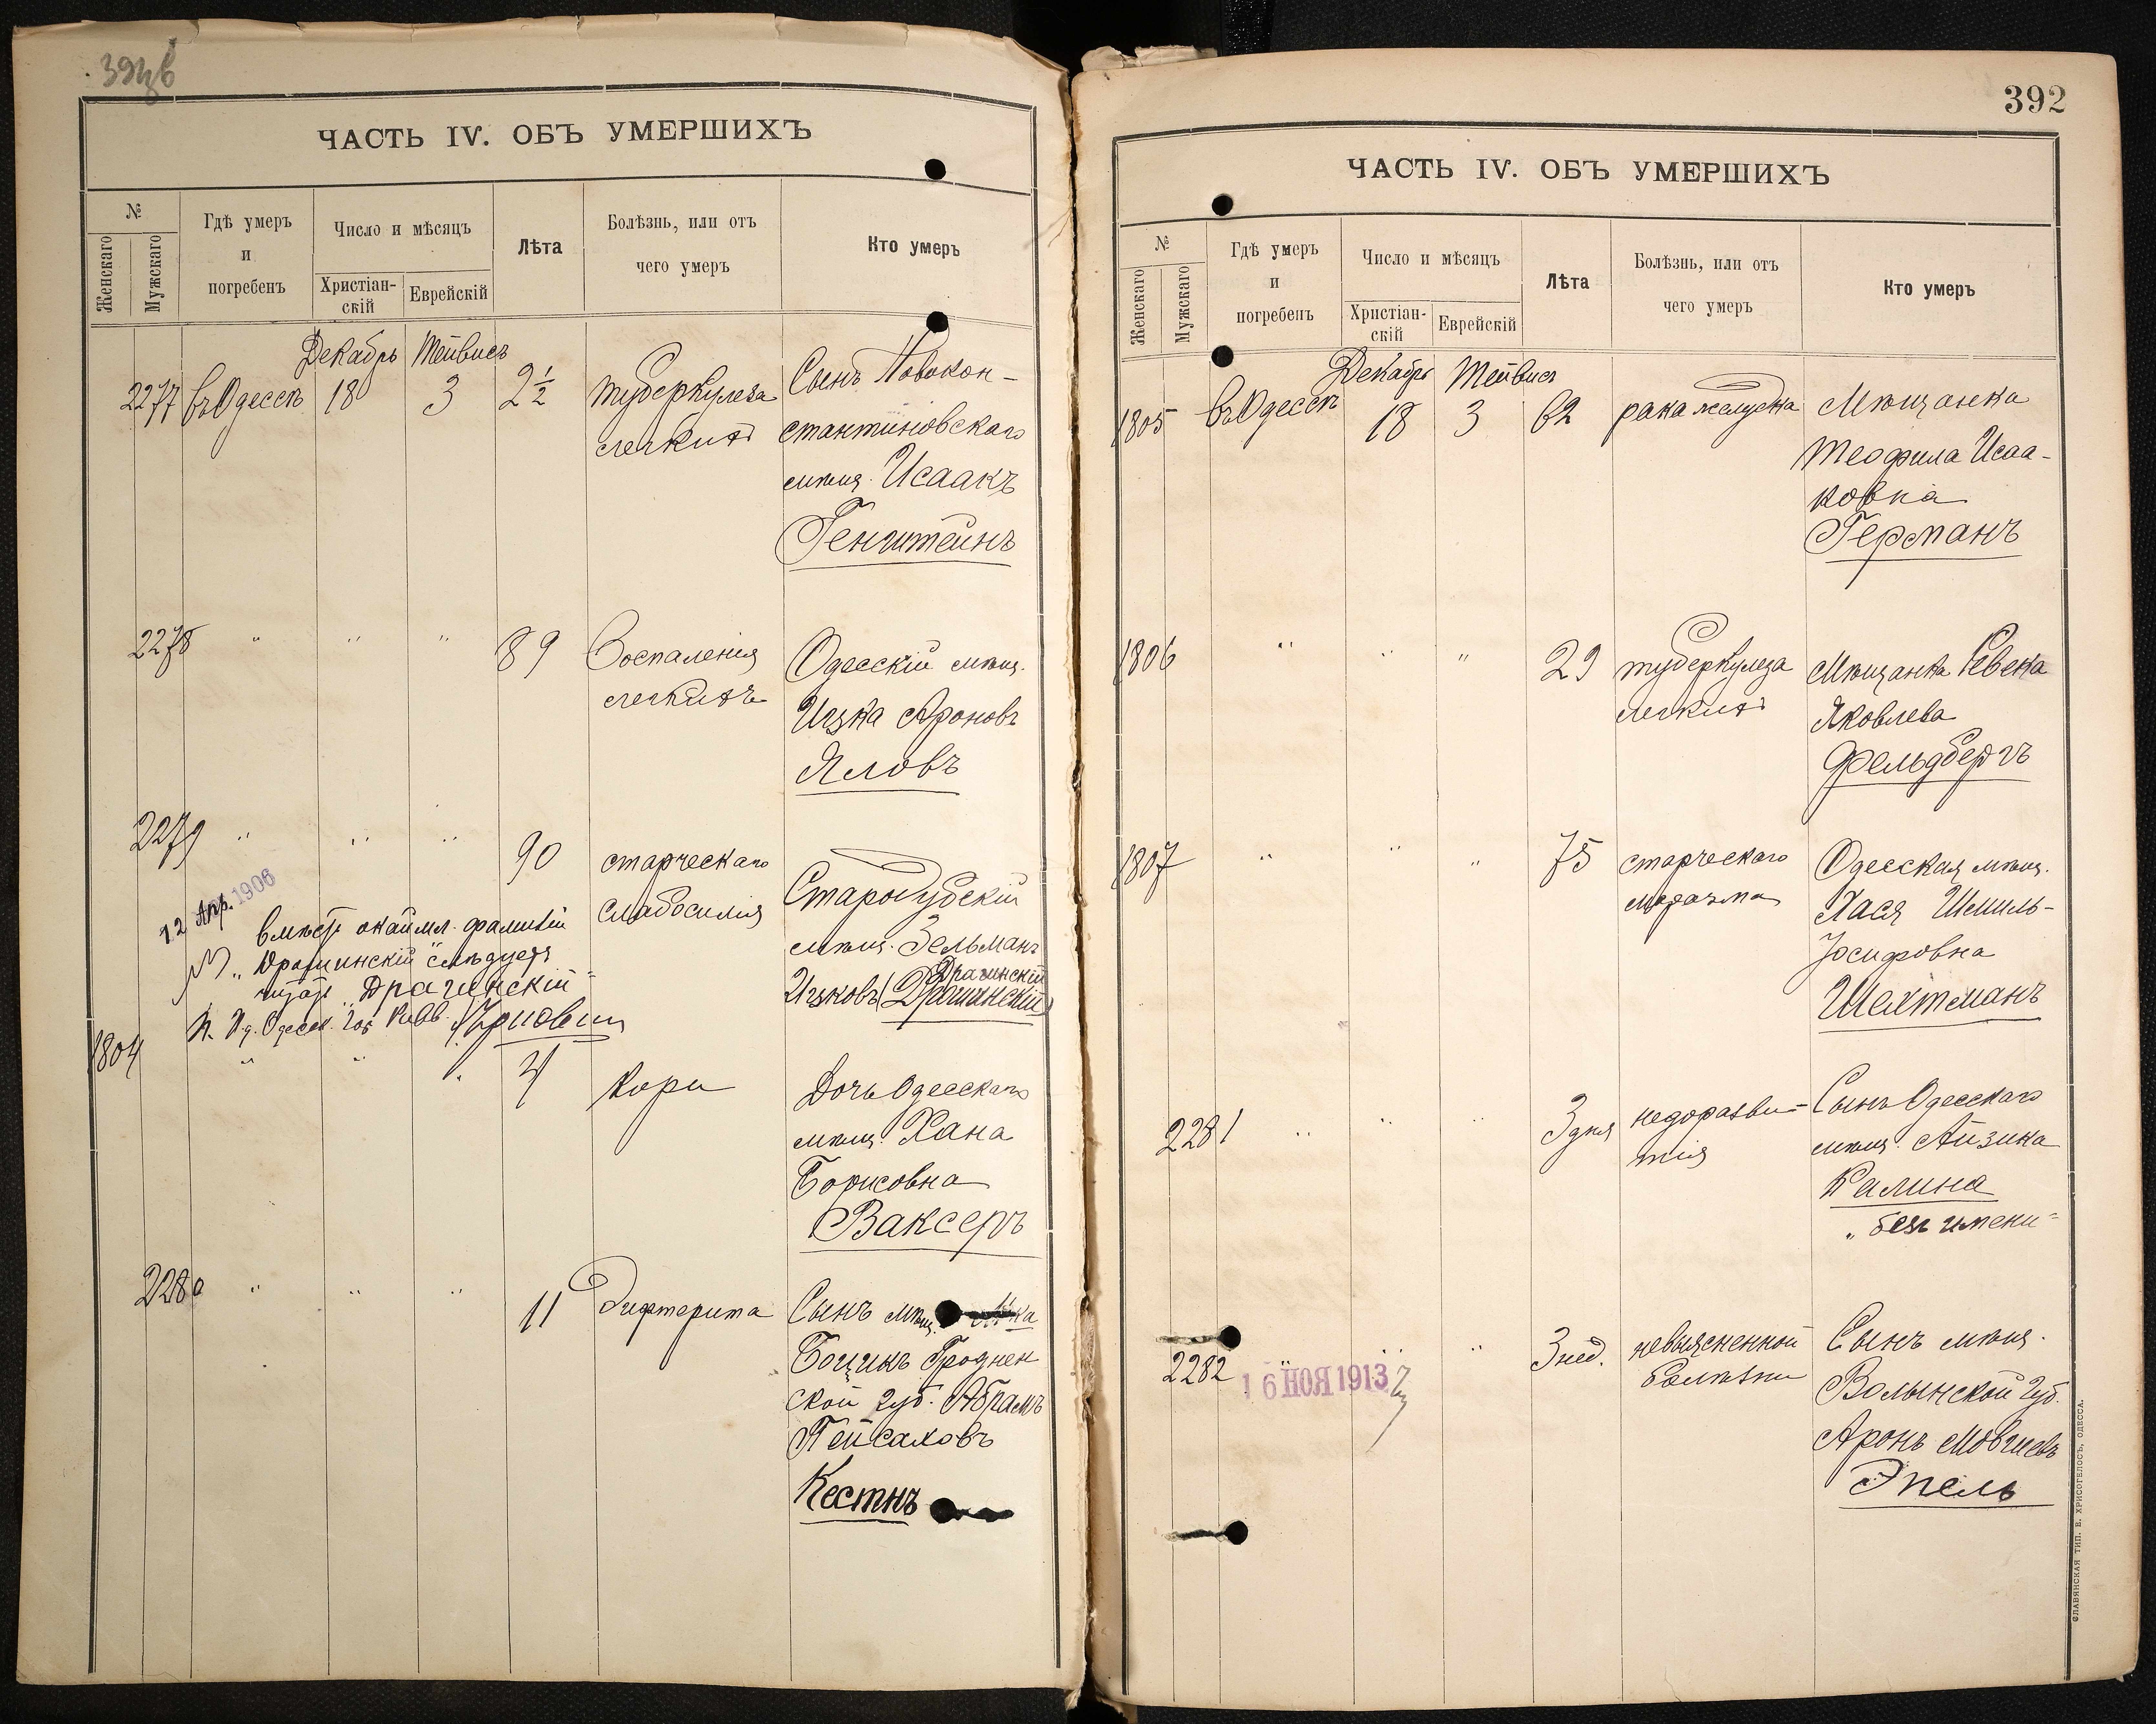 391 об
ЧАСТЬ IV. ОБЪ УМЕРШИХЪ
№
Женскаго
Мужскаго
Гдѣ умеръ
и
погребенъ
Число и мѣсяцъ
Христіан-
скій
Еврейскій
Лѣта
Болѣзнь, или отъ
чего умеръ
Кто умеръ
Декабрь Тейвисъ
2277 въ Одессѣ 18 3 2½ туберкулеза Сынъ Новокон-
легкихъ стантиновскаго
мѣщ. Исаакъ
Генштейнъ
2278 " " " 89 Воспаленія Одесскій мѣщ.
легкихъ Ицка Ароновъ
Яловъ
2279 " " " 90 старческаго Стародубскій
слабосилія мѣщ. Зельманъ
Драгинскій
Ицковъ (Драшинскій)
12 Апр. 1906
вмѣсто окаймл. фамилій
"Драшинскій" слѣдуетъ
читать "Драгинскій"
И. д. Одесск. Гор. Равв.
1804 " " " 4 Кори Дочь Одесскаго
мѣщ. Хана
Борисовна
Ваксеръ
2280 " " " 11 Дифтерита Сынъ мѣщ.
Боцикъ Гроднен
ской губ. Абрамъ
Пейсаховъ
Кестнъ
392
ЧАСТЬ IV. ОБЪ УМЕРШИХЪ
№
Женскаго
Мужскаго
Гдѣ умеръ
и
погребенъ
Число и мѣсяцъ
Христіан-
скій
Еврейскій
Лѣта
Болѣзнь, или отъ
чего умеръ
Кто умеръ
Декабрь Тейвисъ
1805 въ Одессѣ 18 3 62 рака желудка Мѣщанка
Теофила Исаа-
ковна
Германъ
1806 " " " 29 туберкулеза Мѣщанка Ревека
легкихъ Яковлева
Фельдбергъ
1807 " " " 75 старческаго Одесская мѣщ.
маразма Хася Шмиль-
Іосифовна
Шехтманъ
2281 " " " 3 дня недоразви- Сынъ Одесскаго
тія мѣщ. Айзика
Калина
"безъ имени"
2282 " " " 3 нед. невыясненной Сынъ мѣщ.
болѣзни Волынской губ.
16 НОЯ 1913
Аронъ Мовшевъ
Эпель
СЛАВЯНСКАЯ ТИП. Е. ХРИСОГЕЛОСЪ, ОДЕССА.